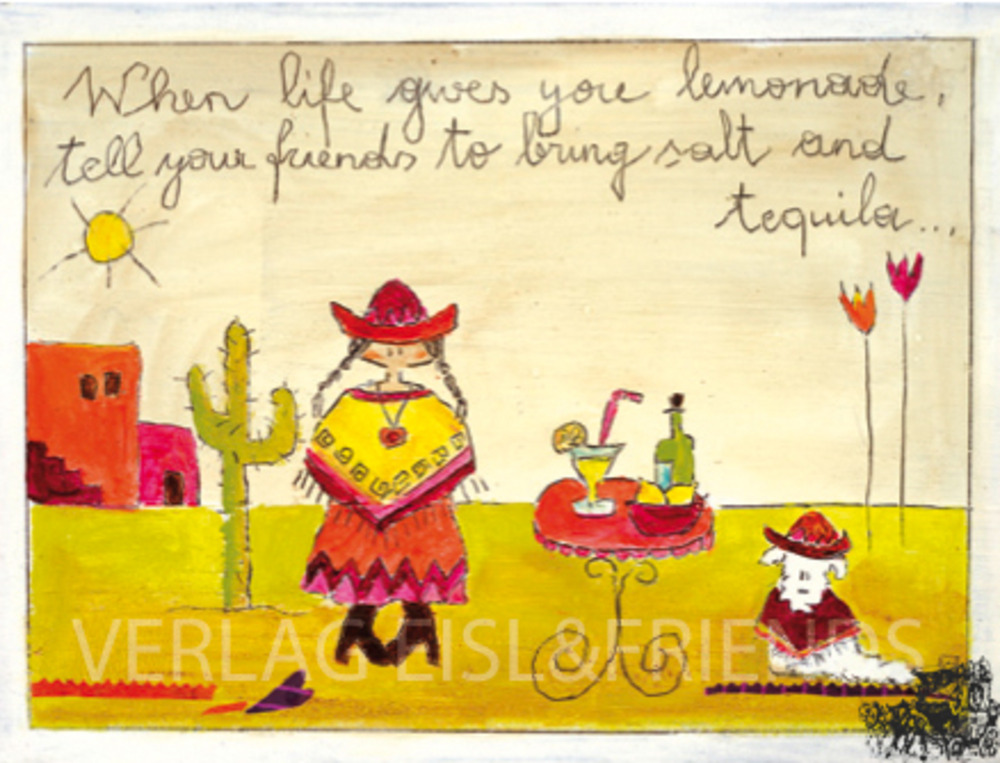 When life gives you lemonade,
tell your friends to bring salt and
tequila...
VERLAG EISL&FRIENDS